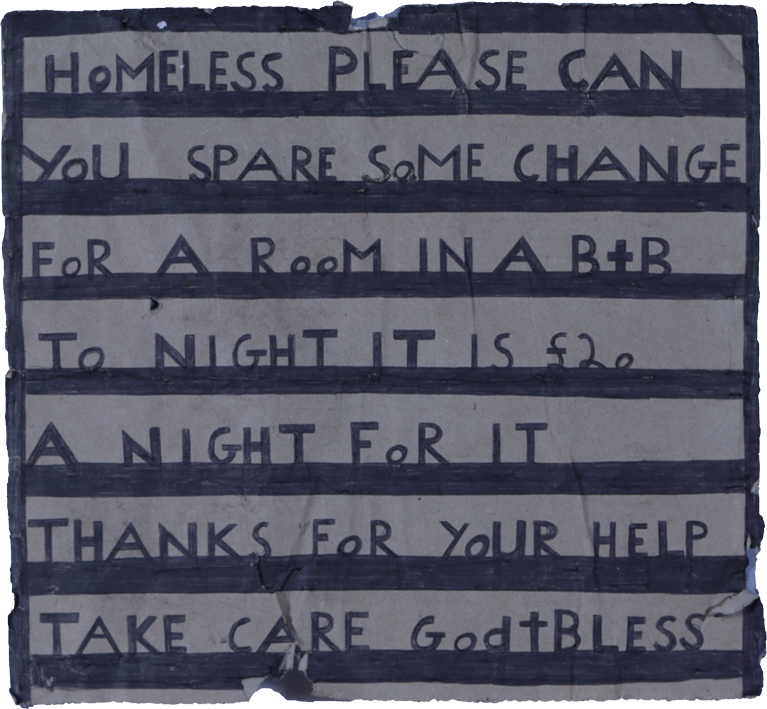 HoMELESS PLEASE CAN
YoU SPARE SoME CHANGE
FoR A RooM IN A B+B
To NIGHT IT IS £20
A NIGHT FoR IT
THANKS FoR YoUR HELP
TAKE CARE God✝BLESS